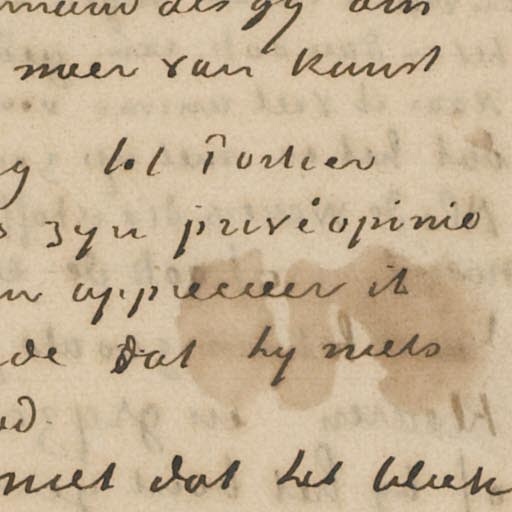 als gy om
meer van kunst
tot Portier
zyn privéopinie
apprecieer ik
de dat hy niets
niet dat het bleek